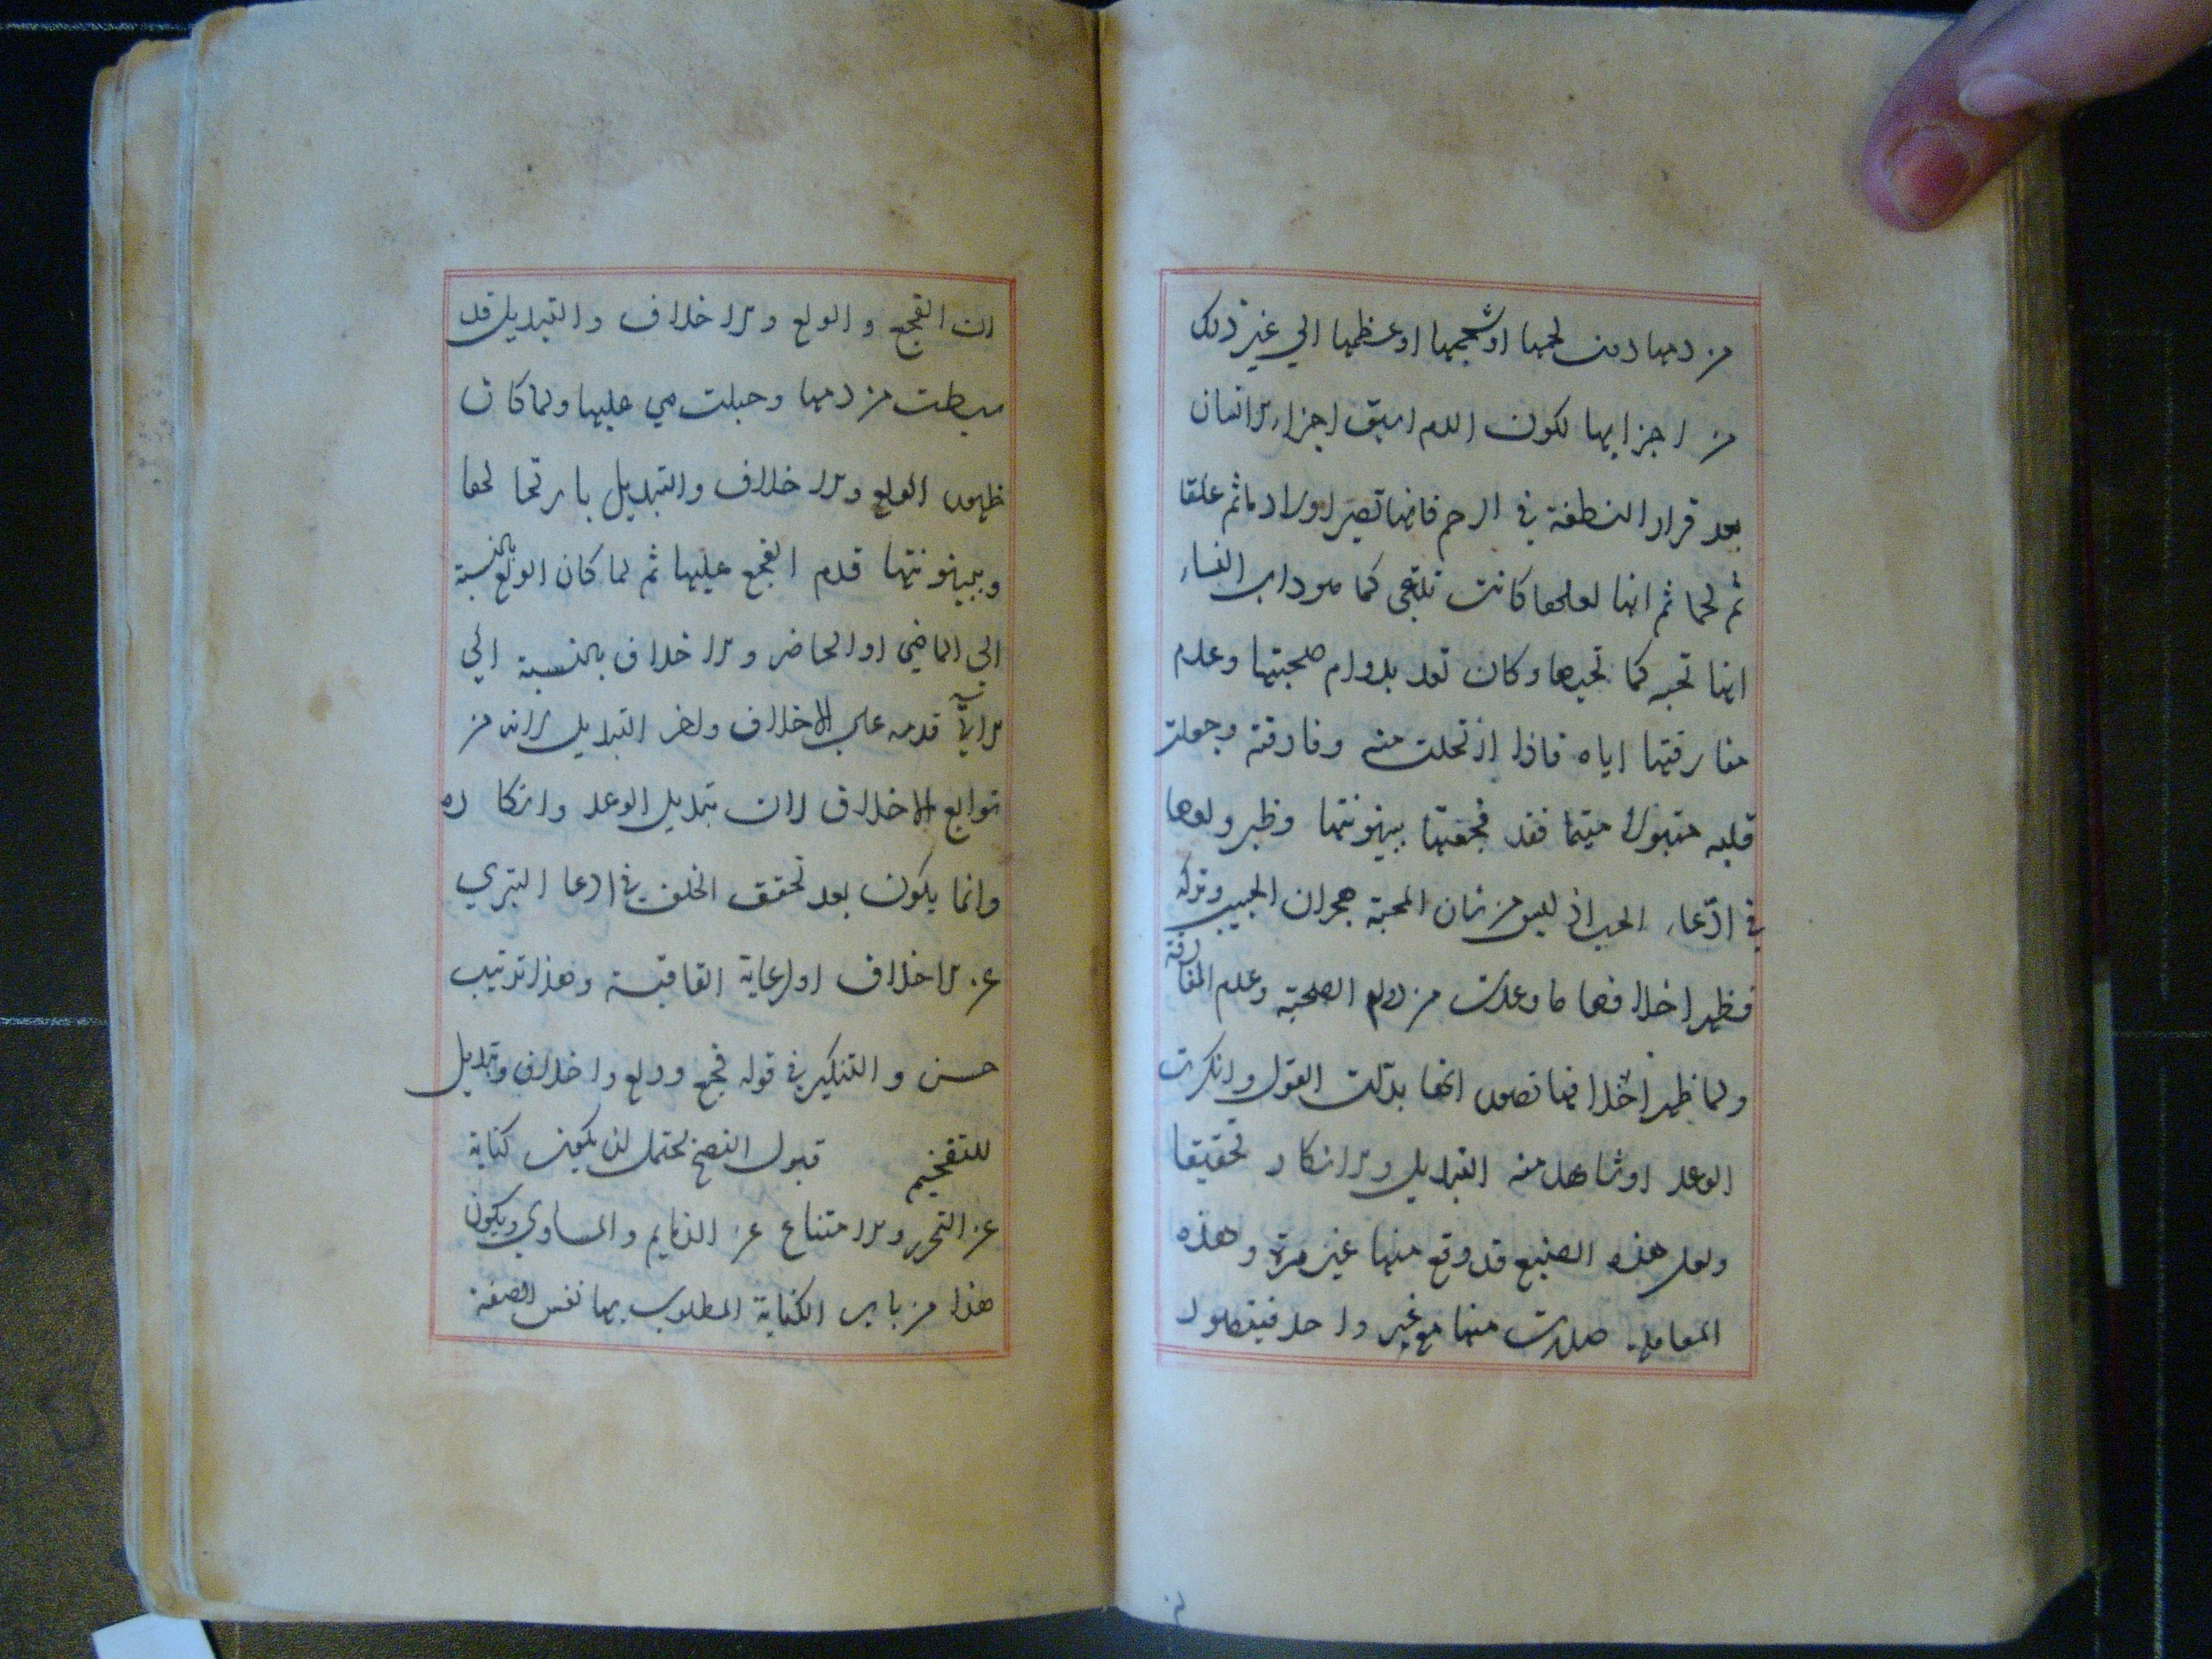 من دمها دون لحمها او شحمها او عظمها الي غير ذلك
من اجزايها لكون الدم اسبق اجزاء الانسان
بعد قرار النطفة في الرحم فانها تصير اولا دما ثم علقا
ثم لحما ثم انها لعلها كانت تلقي كما هو داب النساء
انها تحبه كما تحبها وكان تعد بدوام صحبتها وعدم
مفارقتها اياه فاذا ارتحلت عنه وفارقته وجعلت
قلبه متبولا متيما فقد فجعتها ببينونتها وظهر ولعها
في ادعاء الحب اذ ليس من شان المحبة هجران الحبيب وتركه
فظهر اخلافها ما وعدت من دوام الصحبة وعدم المفارقة
ولما ظهر اخلافها تصور انها بدلت القول وانكرت
الوعد او شاهد منه التبديل والانكار تحقيقا
ولعل هذه الصنيع قد وقع منها غير مرة وهذه
المعاملة صدرت منها مع غير واحد فيتصور
ان الفجع والولع والاخلاف والتبديل قد
سيطت من دمها وجبلت هي عليها ولما كان
ظهور الولع والاخلاف والتبديل بارتحالها
وبينونتها قدم الفجع عليها ثم لما كان الولع بالنسبة
الي الماضي او الحاضر والاخلاف بالنسبة الي
الاتي قدمه علي الاخلاف واخر التبديل لانه من
توابع الاخلاف لان تبديل الوعد وانكاره
وانما يكون بعد تحقق الخلف في ادعا التبري
عن الاخلاف او لرعاية القافية وهذا ترتيب
حسن والتنكير في قوله فجع وولع واخلاف وتبديل
للتفخيم قبول النصح يحتمل ان يكون كناية
عن التحرر والامتناع عن الذمايم والمساوي ويكون
هذا من باب الكناية المطلوب بها نفس الصفة